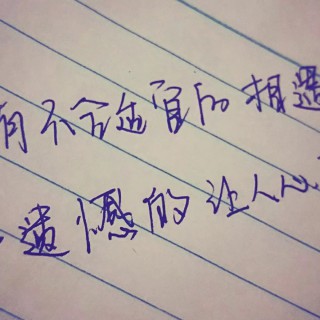 有不合适宜的相遇
遗憾的让人心